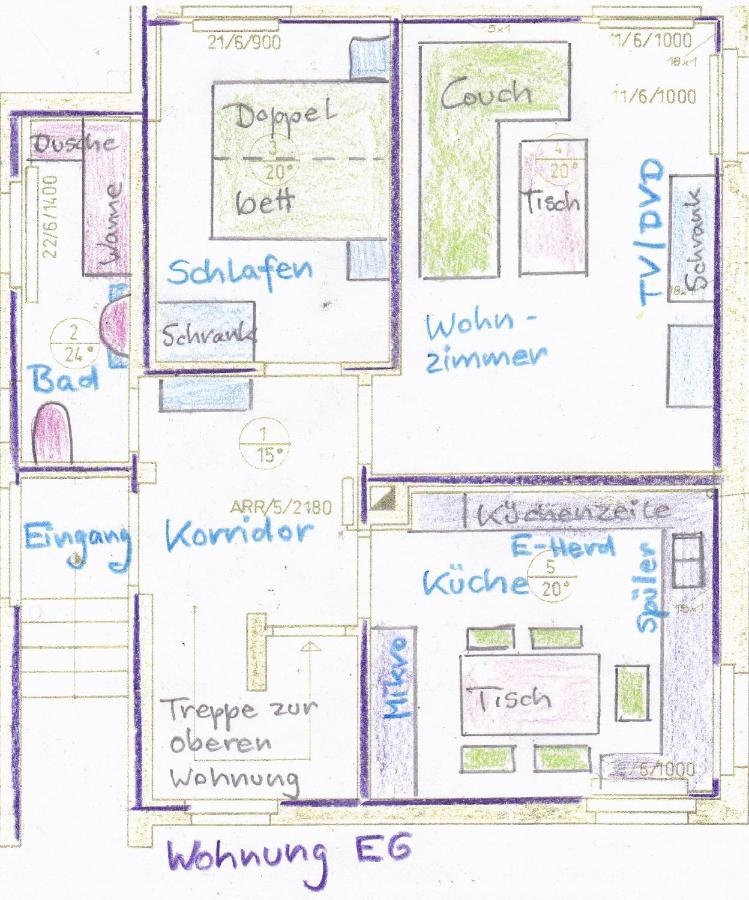 21/6/900
5x1
11/6/1000
18x1
11/6/1000
Couch
Doppel
3
20°
bett
4
20°
Tisch
Dusche
Wanne
22/6/1400
TV/DVD
Schrank
Schlafen
Schrank
Wohn-
zimmer
2
24°
Bad
1
15°
ARR/5/2180
Küchenzeile
Eingang
Korridor
E-Herd
Küche
5
20°
Spüler
Mikro
Tisch
Treppe zur
oberen
Wohnung
/6/1000
Wohnung EG